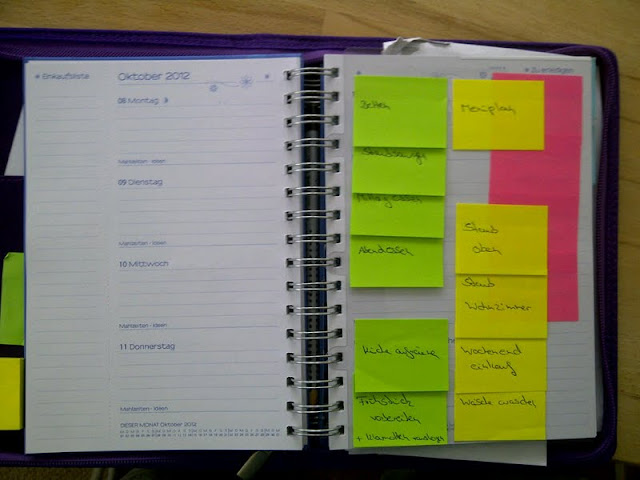 Einkaufsliste
Oktober 2012
08 Montag
Mahlzeiten - Ideen
09 Dienstag
Mahlzeiten - Ideen
10 Mittwoch
Mahlzeiten - Ideen
11 Donnerstag
Mahlzeiten - Ideen
DIESER MONAT Oktober 2012
zu erledigen
Betten
Staubsaugen
Mittagessen
Abendessen
Küche aufräumen
Frühstück
vorbereiten
+
Menüplan
Staub
oben
Staub
Wohnzimmer
Wochenend
einkauf
Wäsche waschen